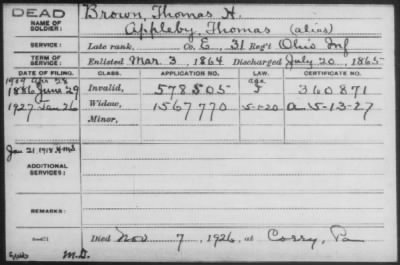 DEAD
NAME OF SOLDIER:
Brown, Thomas H.
Appleby, Thomas (alias)
SERVICE:
Late rank, Co. E, 31 Reg't Ohio Inf
TERM OF SERVICE
Enlisted Mar. 3, 1864 Discharged July 20, 1865
DATE OF FILING. CLASS. APPLICATION NO. LAW. CERTIFICATE NO.
1909 Apr 28 age
1886 June 29 Invalid, 578805 360871
1927 Jan 26 Widow, 1567770 5-1-20 a 5-13-27
Minor,
Jan 21, 1918
ADDITIONAL SERVICES:
REMARKS:
Died Nov 7, 1926, at Corry, Pa